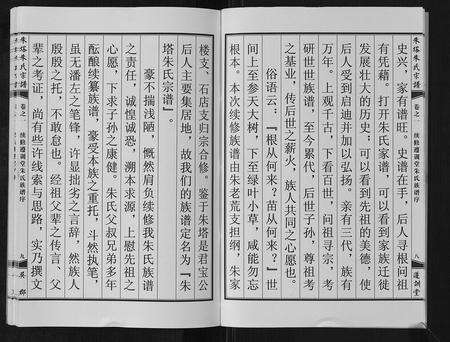 史兴，家有谱旺。史谱在手，后人寻根问祖
有凭藉。打开朱氏家谱，可以看到家族迁徙
发展壮大的历史；可以看到先祖的美德，使
后人受到启迪并加以弘扬。亲有三代，族有
万年。上观千古，下看百世，问祖寻宗，考
研世世族谱，至今累代，后世子孙，尊祖考
之基业，传后世之薪火，族人共同之心愿也。
俗语云：『根从何来？苗从何来？』世
间上至参天大树，下至绿叶小草，咸能勿忘
根本。本次续修族谱由朱老荒支担纲，朱家
楼支、石店支归宗合修。鉴于朱塔是君宝公
后人主要集居地，故我们的族谱定名为『朱
塔朱氏宗谱』。
豪不揣浅陋，慨然肩负续修我朱氏族谱
之责任，诚惶诚恐，溯本求源，上慰先祖之
心愿，下求子孙之康健。朱氏父叔兄弟多年
酝酿续纂族谱，豪受本族之重托，斗然执笔，
虽无潘左之笔锋，许显拙劣之言辞，然族人
殷殷之托，不敢怠也。经祖父辈之传言、父
辈之考证，尚有些许线索与思路，实乃撰文
朱塔朱氏宗谱
卷之一
续修遵训堂朱氏族谱序
九
朱塔朱氏宗谱
卷之一
续修遵训堂朱氏族谱序
八
遵训堂